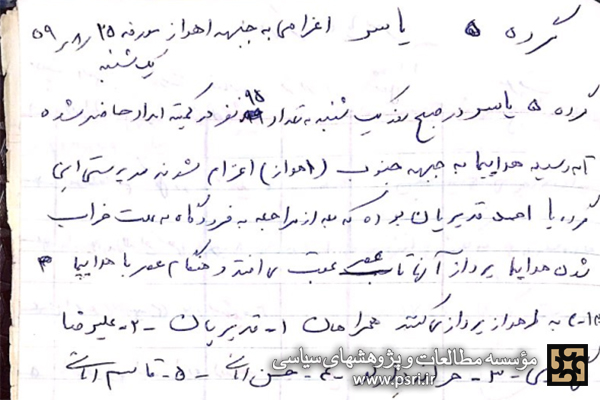 گروه ۵ یاسر اعزامی به جبهه اهواز مورخه ۲۵ / ۵۹
یکشنبه
گروه ۵ یاسر در صبح یک شنبه به تعداد ۹۵ نفر در کمیته امداد حاضر شده
تا به وسیله هواپیما به جبهه جنوب (اهواز) اعزام شوند سرپرستی این
گروه با احمد قدیریان بوده که بعد از مراجعه به فرودگاه به علت خراب
شدن هواپیما پرواز آنها تا عصر عقب می افتد و هنگام عصر با هواپیما
به اهواز پرواز می کنند همراهان ۱- قدیریان ۲- علیرضا
۳- ۴- حسن ۵- قاسم
مؤسسه مطالعات و پژوهشهای سیاسی
www.psri.ir